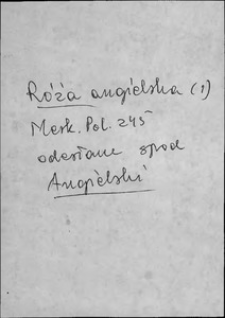 Róża angielska (1)
Mesk. Pol. 245
odesłane spod
Angielski